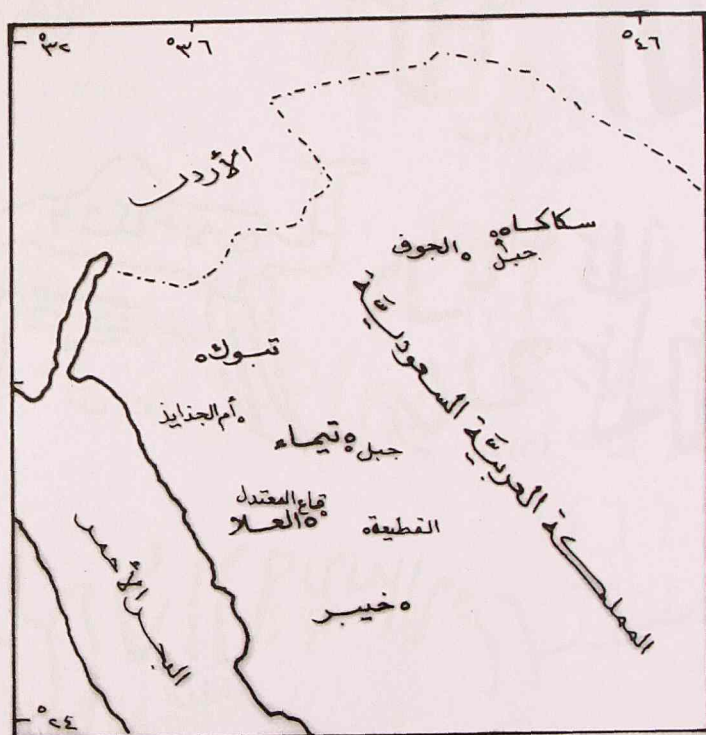 °٣٢
°٣٦
°٤٦
الأردن
سكاكا
جبل
الجوف
المملكة العربيّة السعوديّة
تبوك
أم الجذايذ
تيماء
جبل
قاع المعتدل
العلا
القطيعة
خيبر
البحر الأحمر
°٢٤